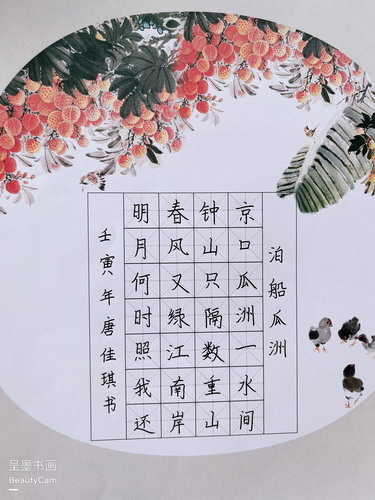 泊船瓜洲
京口瓜洲一水间
钟山只隔数重山
春风又绿江南岸
明月何时照我还
壬寅年唐佳琪书
呈墨书画
BeautyCam